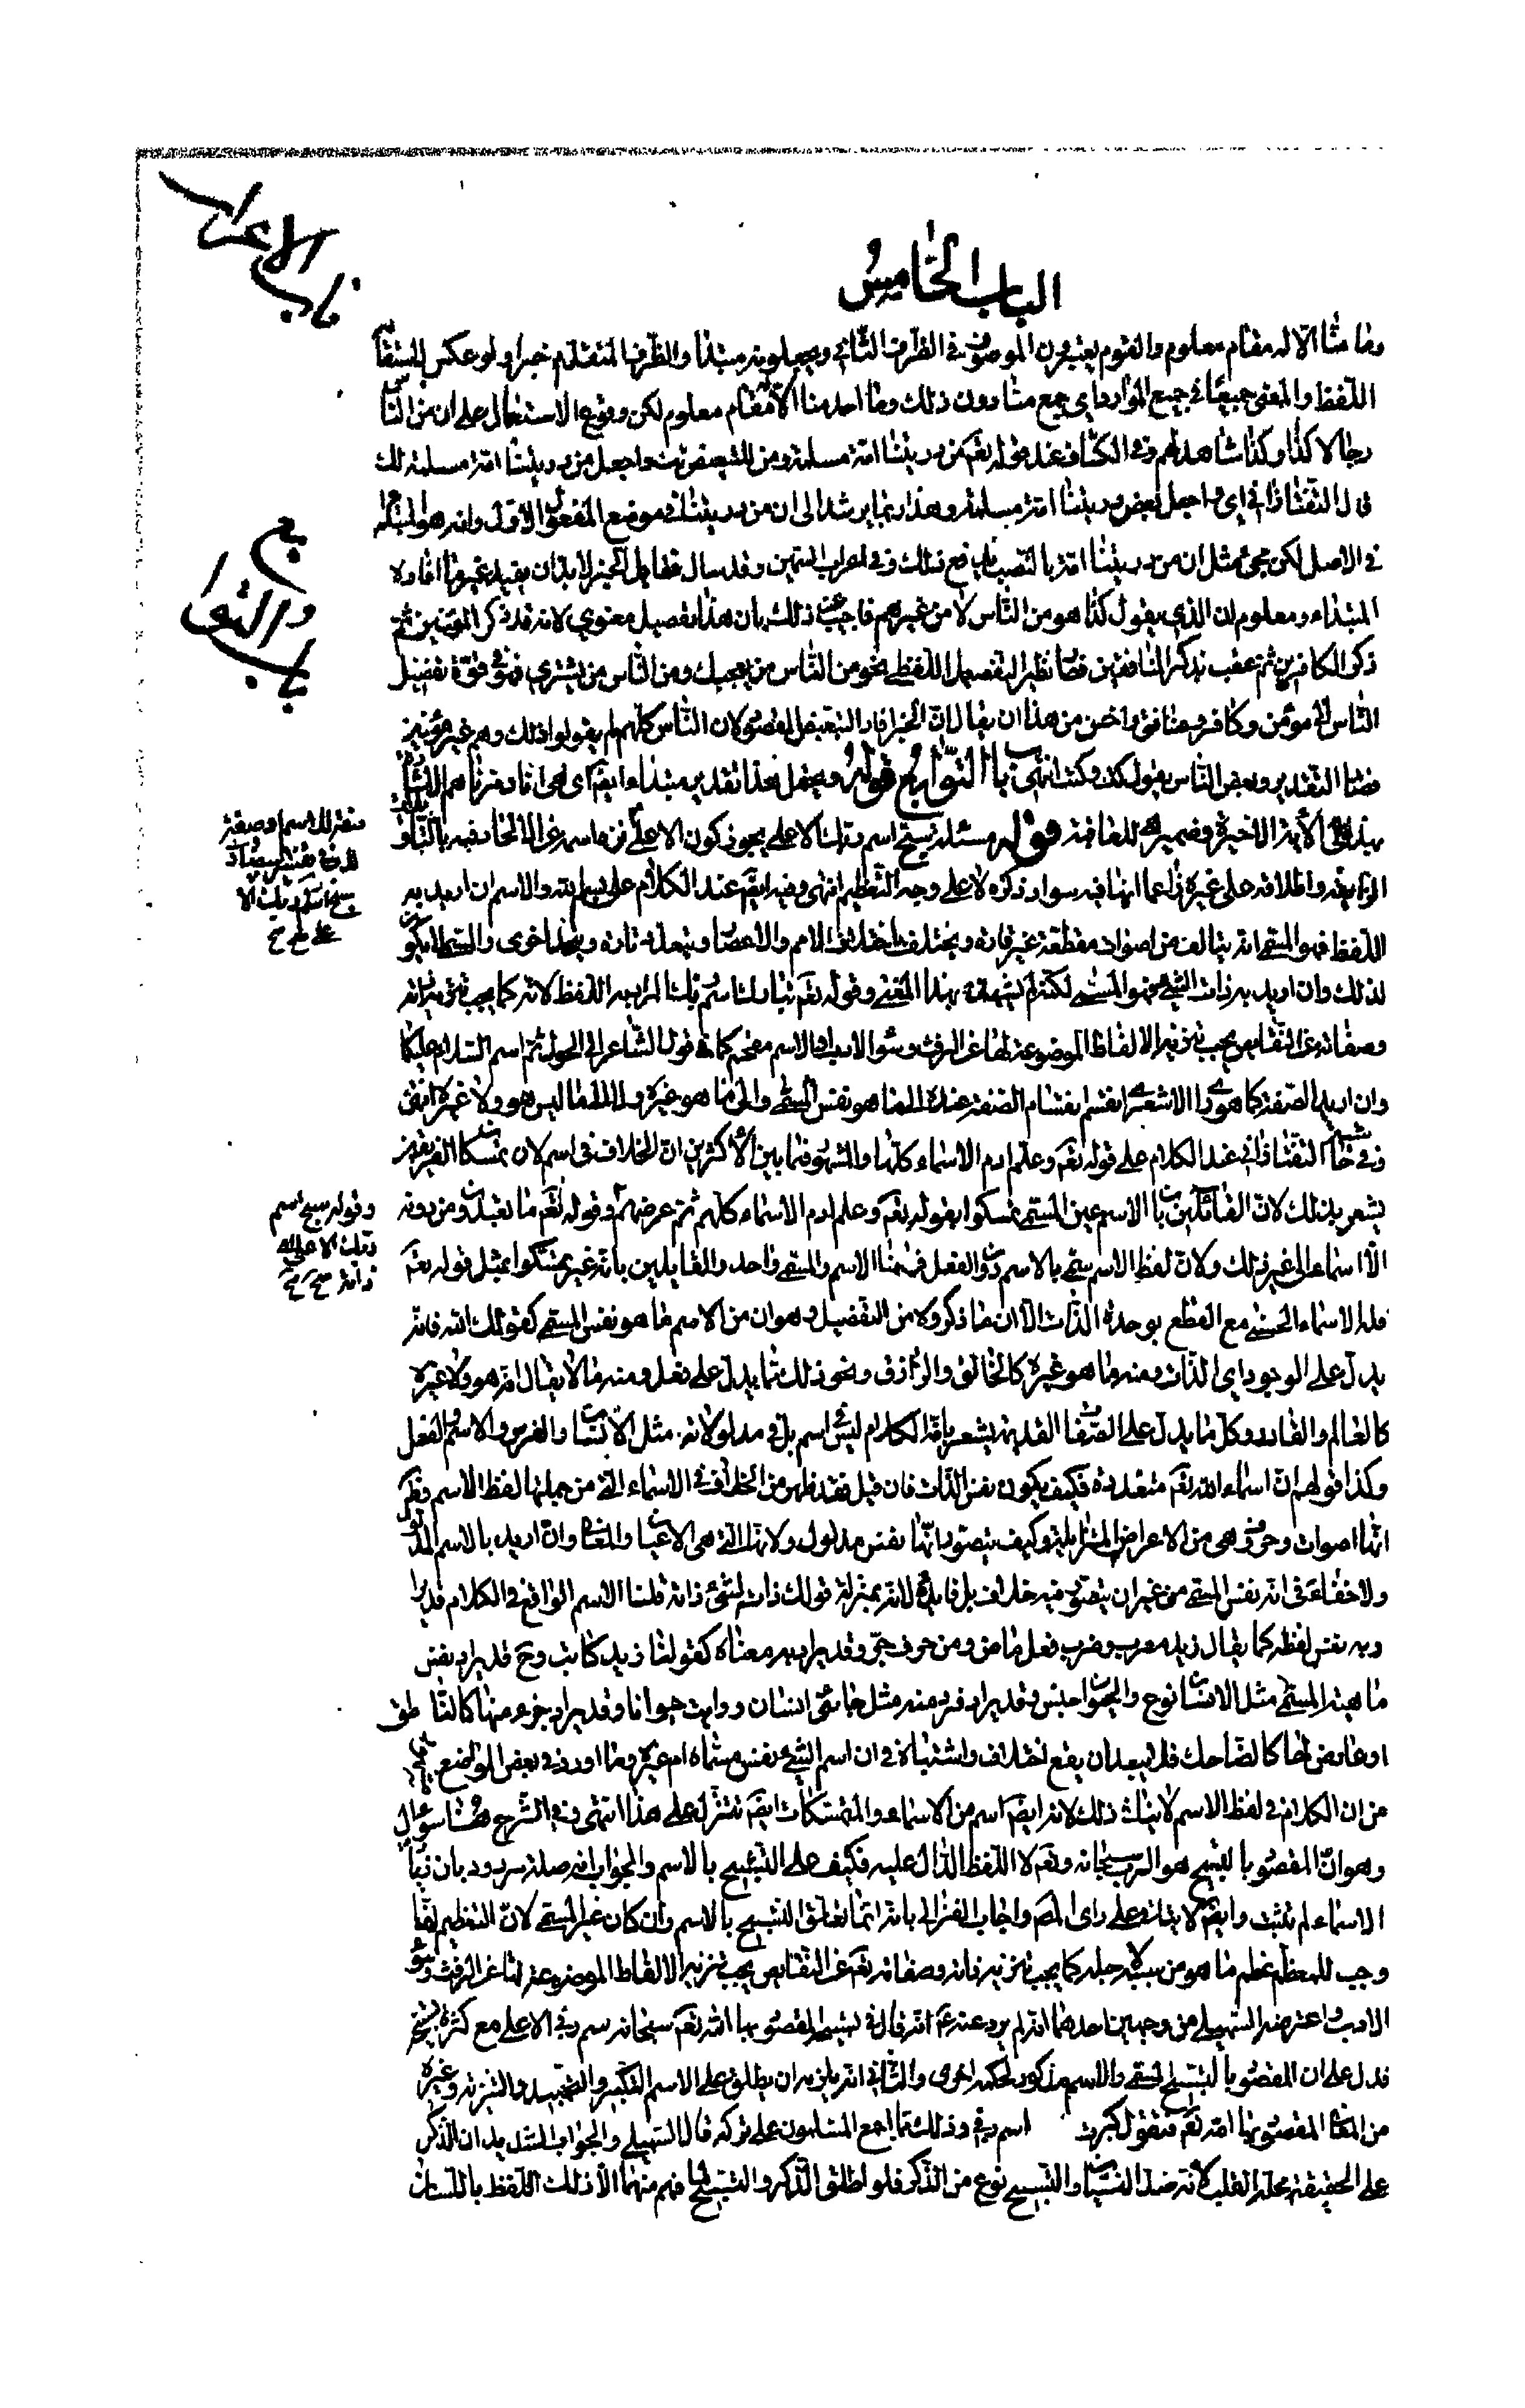 الباب الخامس
وما منا الا له مقام معلوم والقوم يعتبرون الموصوف في الظرف الثاني ويجعلونه مبتدأ والظرف المتقدم خبرا ولو عكس لاستقام
اللفظ والمعنى جميعا في جميع الموارد اي جمع منا دون ذلك وما احد منا الا له مقام معلوم لكن وقوع الاستعمال على ان من الناس
رجالا كذا وكذا شاهد لهم وفي الكشاف عند قوله تعم من ذريتنا امة مسلمة ومن للتبعيض واجعل من ذريتنا امة مسلمة لك
قال التفتازاني اي واجعل بعض ذريتنا امة مسلمة وهذا ربما يرشد الى ان من ذريتنا في موضع المفعول الاول وانه هو المبتدأ
في الاصل لكن مجئ مثل ان من ذريتنا امة بالنصب يدفع ذلك وفي اعراب السمين وقد سال الخبر لا بد ان يفيد غير ما افاده
المبتداء ومعلوم ان الذي يقول كذا هو من الناس لا من غيرهم فاجيب عن ذلك بان هذا تفصيل معنوي لانه قد ذكر المؤمنين ثم
ذكر الكافرين ثم عقب بذكر المنافقين فصار نظير التفصيل اللفظي نحو من الناس من يعجبك ومن الناس من يشتري فهو في قوة تفصيل
الناس الى مؤمن وكافر ومنافق واحسن من هذا ان يقال ان الخبر افاد التبعيض المقصود لان الناس كلهم لم يقولوا ذلك وهم غير مؤمنين
فصار التقدير وبعض الناس يقول كيت وكيت انتهى باب التوابع قوله ويحتمل هذا تقدير مبتداء ايضم اي هي انا ومرنا هم
بهذا الى الآية الاخيرة وضمير للغافية قوله مسئلة سبح اسم ربك الاعلى يجوز كون الاعلى نزه اسمه عن الالحاد فيه بالتأويلات
الزايغة واطلاقه على غيره زاعما انهما فيه سواء وذكره لا على وجه التعظيم انتهى وفيه ايضم عند الكلام على بسم الله والاسم ان اريد به
اللفظ فهو المسمى لانه يتالف من اصوات مقطعة غير قارة ويختلف باختلاف الامم والاعصار ويتعدد تارة ويتحد اخرى والمسمى لا يكون
لذلك وان اريد به ذات الشئ فهو المسمى لكنه لم يشتهر بهذا المعنى وقوله تعم تبارك اسم ربك المراد به اللفظ لانه كما يجب تنزيه ذاته
وصفاته عن النقايص يجب تنزيه الالفاظ الموضوعة لها عن الرفث وسوء الادب او الاسم مقحم كما في قول الشاعر الى الحول ثم اسم السلام عليكما
وان اريد الصفة كما هو راي الاشعري انقسم انقسام الصفة عنده الى ما هو نفس المسمى والى ما هو غيره والى ما ليس هو ولا غيره انتهى
وفي حاشية التفتازاني عند الكلام على قوله تعم وعلم ادم الاسماء كلها والمشهور فيما بين الاكثرين ان الخلاف في اسم لان تمسكات الفريقين
يشعر بذلك لان القائلين بان الاسم عين المسمى تمسكوا بقوله تعم وعلم ادم الاسماء كلهم ثم عرضهم وقوله تعم ما تعبدون من دونه
الا اسماء الى غير ذلك ولان لفظ الاسم سمى بالاسم دون الفعل فههنا الاسم والمسمى واحد والقايلين بانه غيره تمسكوا بمثل قوله تعم
فله الاسماء الحسنى مع القطع بوحدة الذات الا ان ما ذكروه من التفصيل وهو ان من الاسم ما هو نفس المسمى كقولك الله فانه
يدل على الوجود اي الذات ومنه ما هو غيره كالخالق والرازق ونحو ذلك مما يدل على فعل ومنه ما لا يقال انه هو ولا غيره
كالعالم والقادر وكل ما يدل على الصفات القديمة يشعر بان الكلام ليس في اسم بل في مدلولاته مثل الانسان والفرس والاسم والفعل
وكذا قولهم ان اسماء الله تعم متعددة فكيف يكون نفس الذات فان قيل فقد ظهر من الخلاف في الاسماء التي من جملتها لفظ الاسم وظهر
انها اصوات وحروف وهي من الاعراض المتزايلة وكيف يتصور انها نفس مدلولاتها التي هي الاعيان والمعاني وان اريد بالاسم المدلول
ولا خفاء في انه نفس المسمى من غير ان يتصور فيه خلاف بل فايدة لانه بمنزلة قولك ذات الشئ ذاته قلنا الاسم الواقع في الكلام قد يراد
به نفس لفظه كما يقال زيد معرب وضرب فعل ماض ومن حرف جر وقد يراد به معناه كقولنا زيد كاتب وح قد يراد نفس
ماهية المسمى مثل الانسان نوع والحيوان جنس وقد يراد فرد منه مثل جاءني انسان ورايت حيوانا وقد يراد جزء منها كالناطق
او عارض لها كالضاحك فلا يبعد ان يقع اختلاف واشتباه في ان اسم الشئ نفس مسماه ام غيره وما اورد في بعض المواضع
من ان الكلام في لفظ الاسم لا ينافي ذلك لانه ايضم اسم من الاسماء والتمسكات ايضم تتنزل على هذا انتهى وفي الشرح هنا سؤال
وهو ان المقصود بالتسبيح هو الرب سبحانه وتعم لا اللفظ الدال عليه فكيف على التسبيح بالاسم والجواب انه صلة مردود بان زيادة
الاسماء لم تثبت وايضم لا يتاتى على راي المصم واجاب الغزالي بانه انما تعلق التسبيح بالاسم وان كان غير المسمى لان التعظيم اذا
وجب للمعظم عظم ما هو من سببه كما يجب تنزيه ذاته وصفاته تعم عن النقايص يجب تنزيه الالفاظ الموضوعة لها عن الرفث وسوء
الادب واعترضه السهيلي من وجهين احدهما انه لم يرد عنه انه قال في تسبيحه المقصود بها الله تعم سبحان اسم ربي الاعلى مع كثرة تسبيحه
فدل على ان المقصود بالتسبيح المسمى والاسم مذكور لحكمة اخرى والثاني انه يلزمه ان يطلق على الاسم التكبير والتحميد والتنزيه وغيره
من المعاني المقصود بها الله تعم فتقول كبرت اسم ربي وذلك مما اجمع المسلمون على تركه قال السهيلي والجواب السديد ان الذكر
على الحقيقة محله القلب لانه ضد النسيان والتسبيح نوع من الذكر فلو اطلق الذكر والتسبيح لما فهم منهما الا ذلك اللفظ باللسان
باب الاعراب
باب التوابع
صفة لك اسم او صفة
سبح اسم ربك الا
على
وقوله سبح اسم
ربك الاعلى